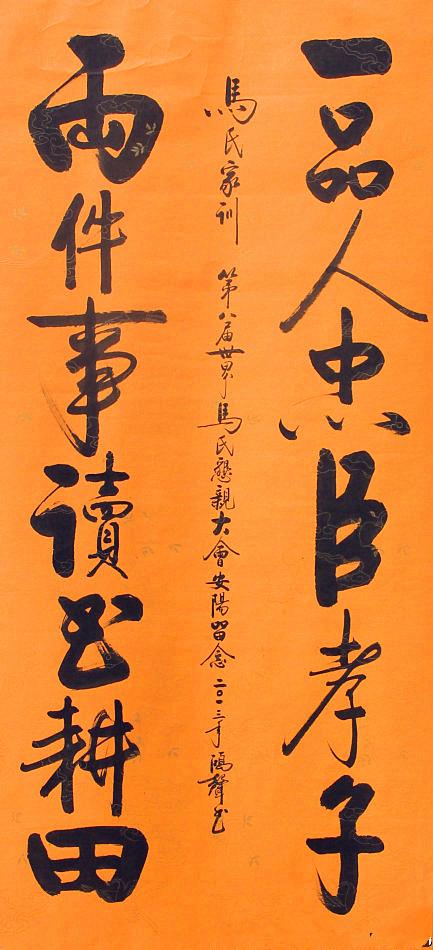 一品人忠臣孝子
馬氏家训 第八届世界馬氏懇親大會安陽留念 二〇一三年 鴻聲书
兩件事讀书耕田